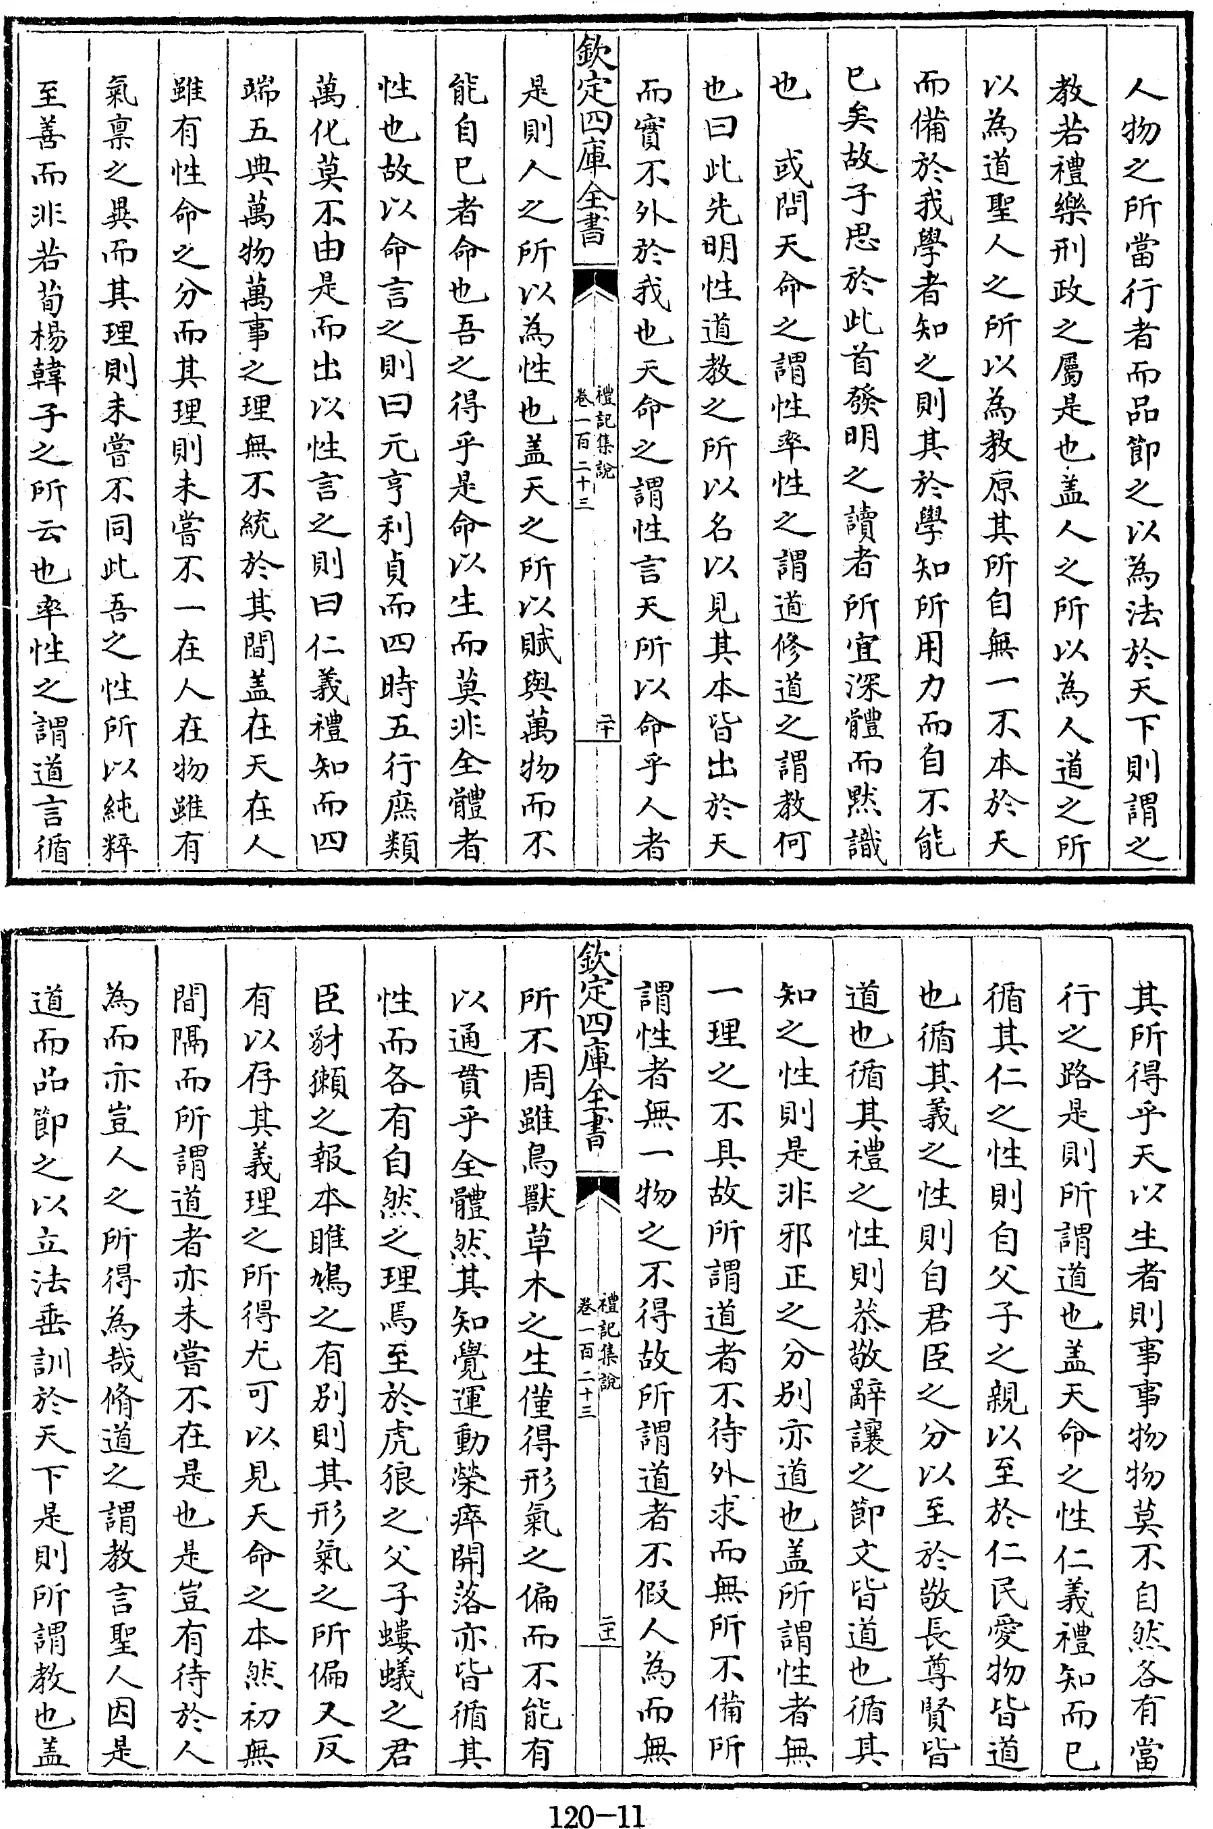 人物之所當行者而品節之以為法於天下則謂之
教若禮樂刑政之屬是也盖人之所以為人道之所
以為道聖人之所以為教原其所自無一不本於天
而備於我學者知之則其於學知所用力而自不能
已矣故子思於此首發明之讀者所宜深體而黙識
也　或問天命之謂性率性之謂道修道之謂教何
也曰此先明性道教之所以名以見其本皆出於天
而實不外於我也天命之謂性言天所以命乎人者
欽定四庫全書
禮記集說
卷一百二十三
二十
是則人之所以為性也盖天之所以賦與萬物而不
能自已者命也吾之得乎是命以生而莫非全體者
性也故以命言之則曰元亨利貞而四時五行庶類
萬化莫不由是而出以性言之則曰仁義禮知而四
端五典萬物萬事之理無不統於其間盖在天在人
雖有性命之分而其理則未嘗不一在人在物雖有
氣禀之異而其理則未嘗不同此吾之性所以純粹
至善而非若荀楊韓子之所云也率性之謂道言循
其所得乎天以生者則事事物物莫不自然各有當
行之路是則所謂道也盖天命之性仁義禮知而已
循其仁之性則自父子之親以至於仁民愛物皆道
也循其義之性則自君臣之分以至於敬長尊賢皆
道也循其禮之性則恭敬辭讓之節文皆道也循其
知之性則是非邪正之分别亦道也盖所謂性者無
一理之不具故所謂道者不待外求而無所不備所
謂性者無一物之不得故所謂道者不假人為而無
欽定四庫全書
禮記集說
卷一百二十三
二十一
所不周雖鳥獸草木之生僅得形氣之偏而不能有
以通貫乎全體然其知覺運動榮瘁開落亦皆循其
性而各有自然之理焉至於虎狼之父子螻蟻之君
臣豺獺之報本雎鳩之有别則其形氣之所偏又反
有以存其義理之所得尤可以見天命之本然初無
間隔而所謂道者亦未嘗不在是也是豈有待於人
為而亦豈人之所得為哉脩道之謂教言聖人因是
道而品節之以立法垂訓於天下是則所謂教也盖
120-11